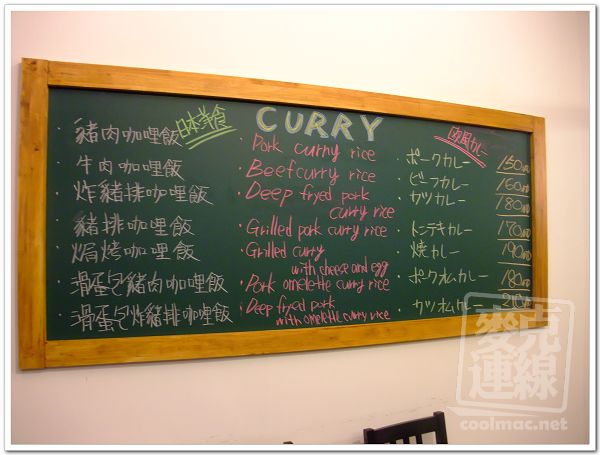 日本洋食
CURRY
欧風カレー
・豬肉咖哩飯
・牛肉咖哩飯
・炸豬排咖哩飯
・豬排咖哩飯
・焗烤咖哩飯
・滑蛋包豬肉咖哩飯
・滑蛋包炸豬排咖哩飯
・Pork curry rice
・Beef curry rice
・Deep fryed pork
curry rice
・Grilled pork curry rice
・Grilled curry
with cheese and egg
・Pork omelette curry rice
・Deep fryed pork
with omelette curry rice
・ポークカレー 150
・ビーフカレー 160
・カツカレー 180
・トンテキカレー 170
・焼カレー 190
・ポークオムカレー 180
・カツオムカレー 210
麥克
連線
coolmac.net